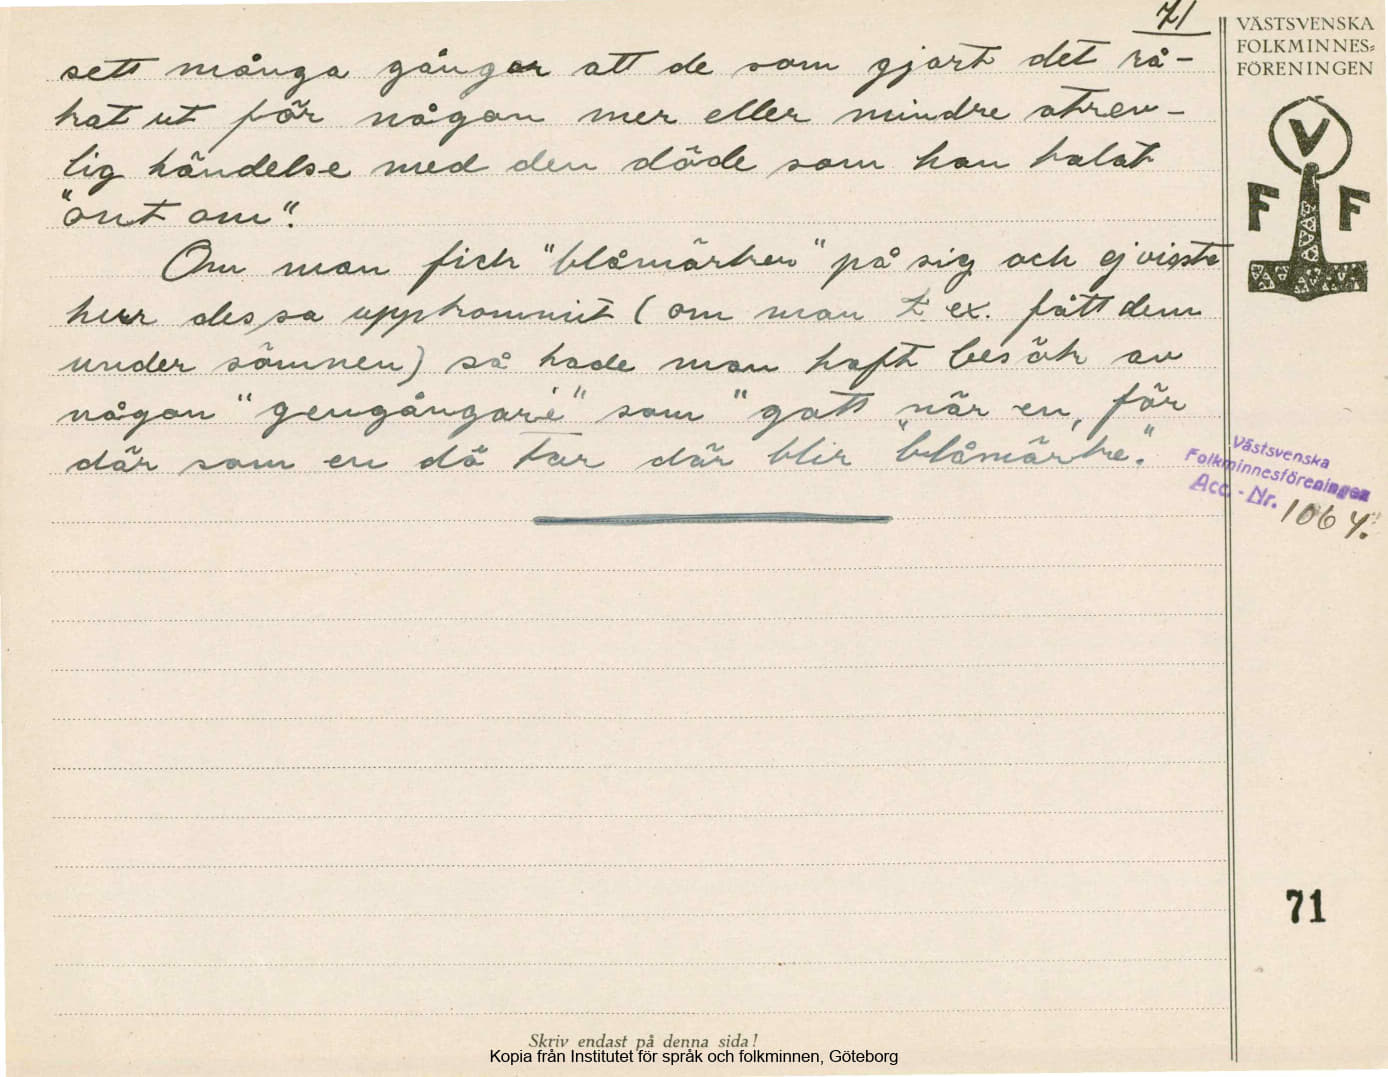 71
VÄSTSVENSKA
FOLKMINNES=
FÖRENINGEN
V
F F
sett många gångar att de som gjort det rå-
kat ut för någon mer eller mindre otrev-
lig händelse med den döde som han talat
"ont om".
Om man fick "blåmärken" på sig och ej visste
hur dessa uppkommit (om man t. ex. fått dem
under sömnen) så hade man haft besök av
någon "gengångare" som "gått när en, för
där som en dö tar där blir "blåmärke."
Västsvenska
Folkminnesföreningen
Acc. - Nr. 1064.
71
Skriv endast på denna sida!
Kopia från Institutet för språk och folkminnen, Göteborg